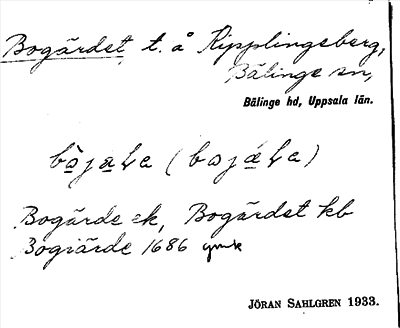 Bogärdet, t. å Ripplingeberg,
Bälinge sn,
Bälinge hd, Uppsala län.
Bogärde ek, Bogärdet kb
Bogiärde 1686 gmk
JÖRAN SAHLGREN 1933.